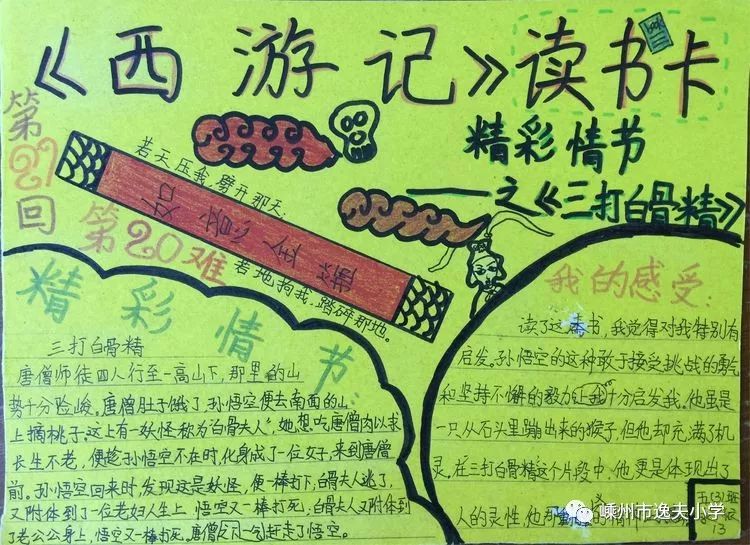 《西游记》读书卡
精彩情节
——之《三打白骨精》
第27回
第20难
若天压我,劈开那天;
如意金箍
若地拘我,踏碎那地。
精彩情节:
三打白骨精
唐僧师徒四人行至一高山下,那里的山
势十分险峻,唐僧肚子饿了,孙悟空便去南面的山
上摘桃子,这上有一妖怪称为"白骨夫人",她想吃唐僧肉以求
长生不老,便趁孙悟空不在时化身成了一位女子,来到唐僧
前。孙悟空回来时发现这是妖怪,便一棒打下,白骨夫人逃了,
又附体到了一位老妇人生上,悟空又一棒打死,白骨夫人又附体到
了老公公身上,悟空又一棒打死。唐僧一气赶走了悟空。
我的感受:
读了这本书,我觉得对我特别有
启发。孙悟空的这种敢于接受挑战的勇气
和坚持不懈的毅力让我十分启发我。他虽是
一只从石头里蹦出来的猴子,但他却充满了机
灵。在三打白骨精这个片段中,他更是体现出了
人的灵性,他
五(3)班
13
嵊州市逸夫小学